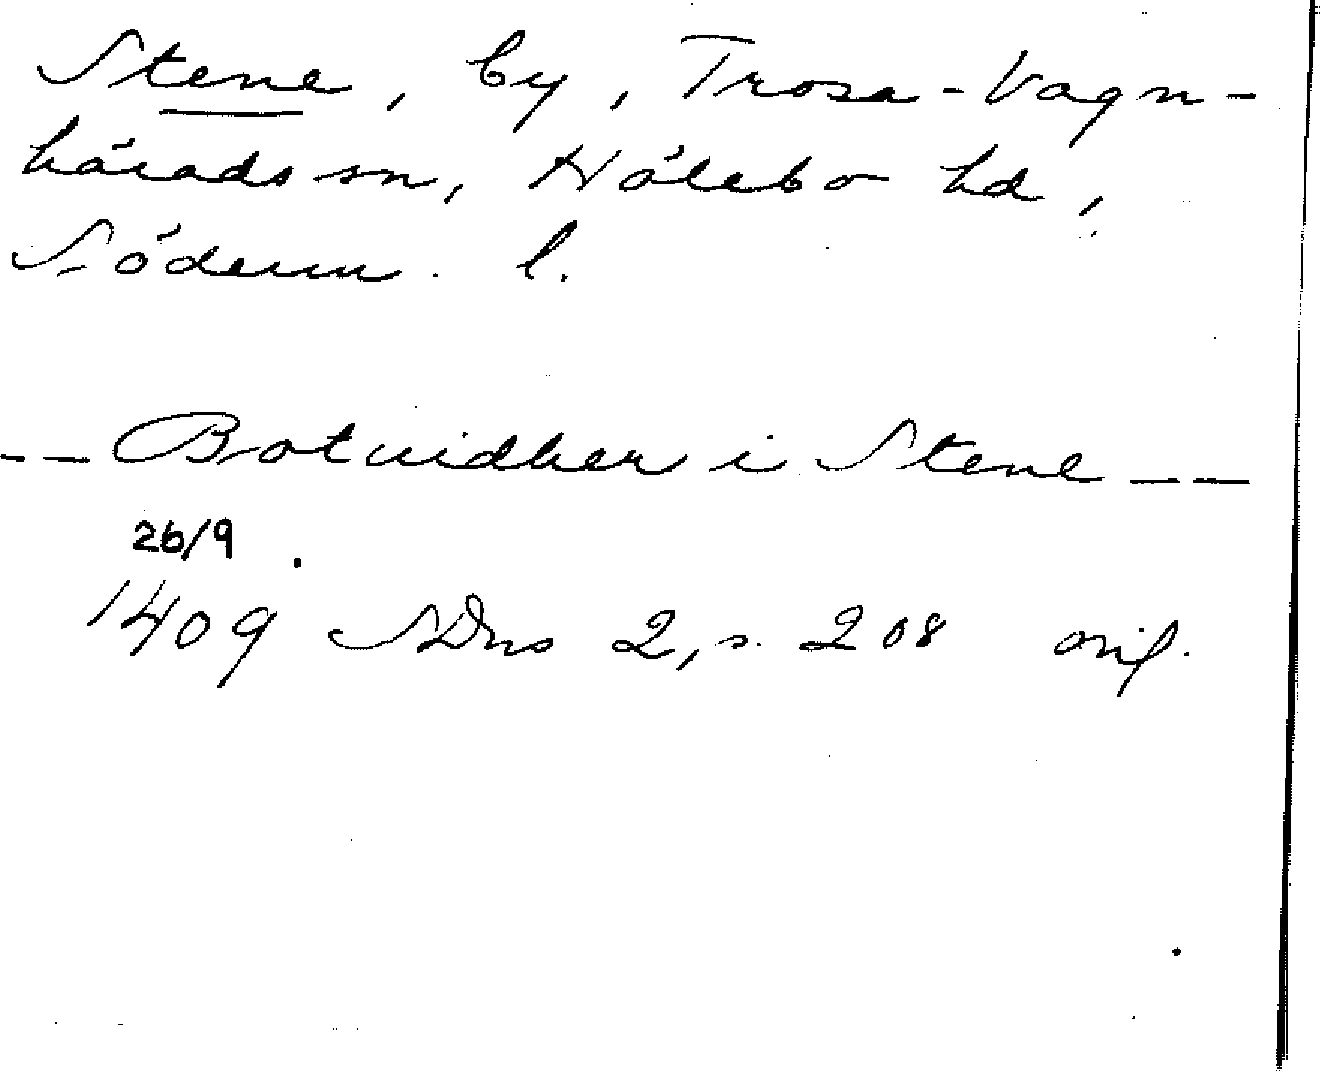 Stene, by, Trosa-Vagn-
härads sn, Hölebo hd,
Söderm. l.
-- Botuidher i Stene --
26/9.
1409 SDns 2, s. 208 orig.